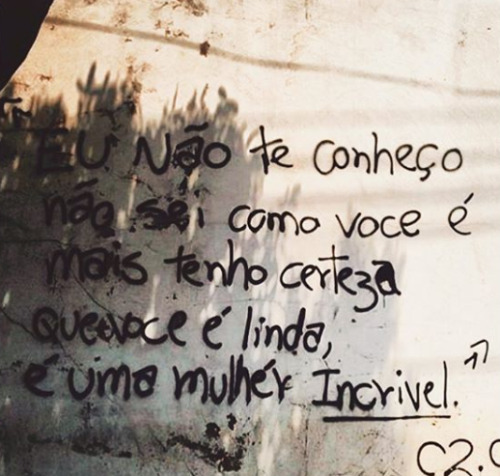 EU Não te conheço
não sei como voce é
mais tenho certeza
que voce é linda,
é uma mulhér Incrivel.